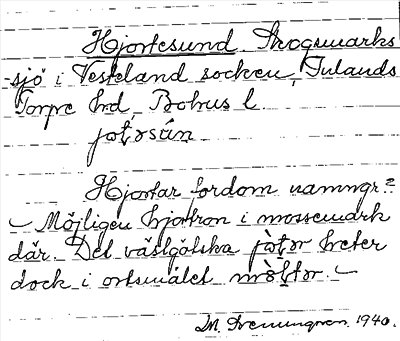 Hjortesund Skogsmarks
sjö i Vesteland socken, Inlands
Torpe hrd, Bohus l.
jot̩rsún
Hjortar fordom namngr.?
– Möjligen hjortron i mossemark
där. Det västgötska jòt̩ər heter
dock i ortsmålet mòltər. –
1940.